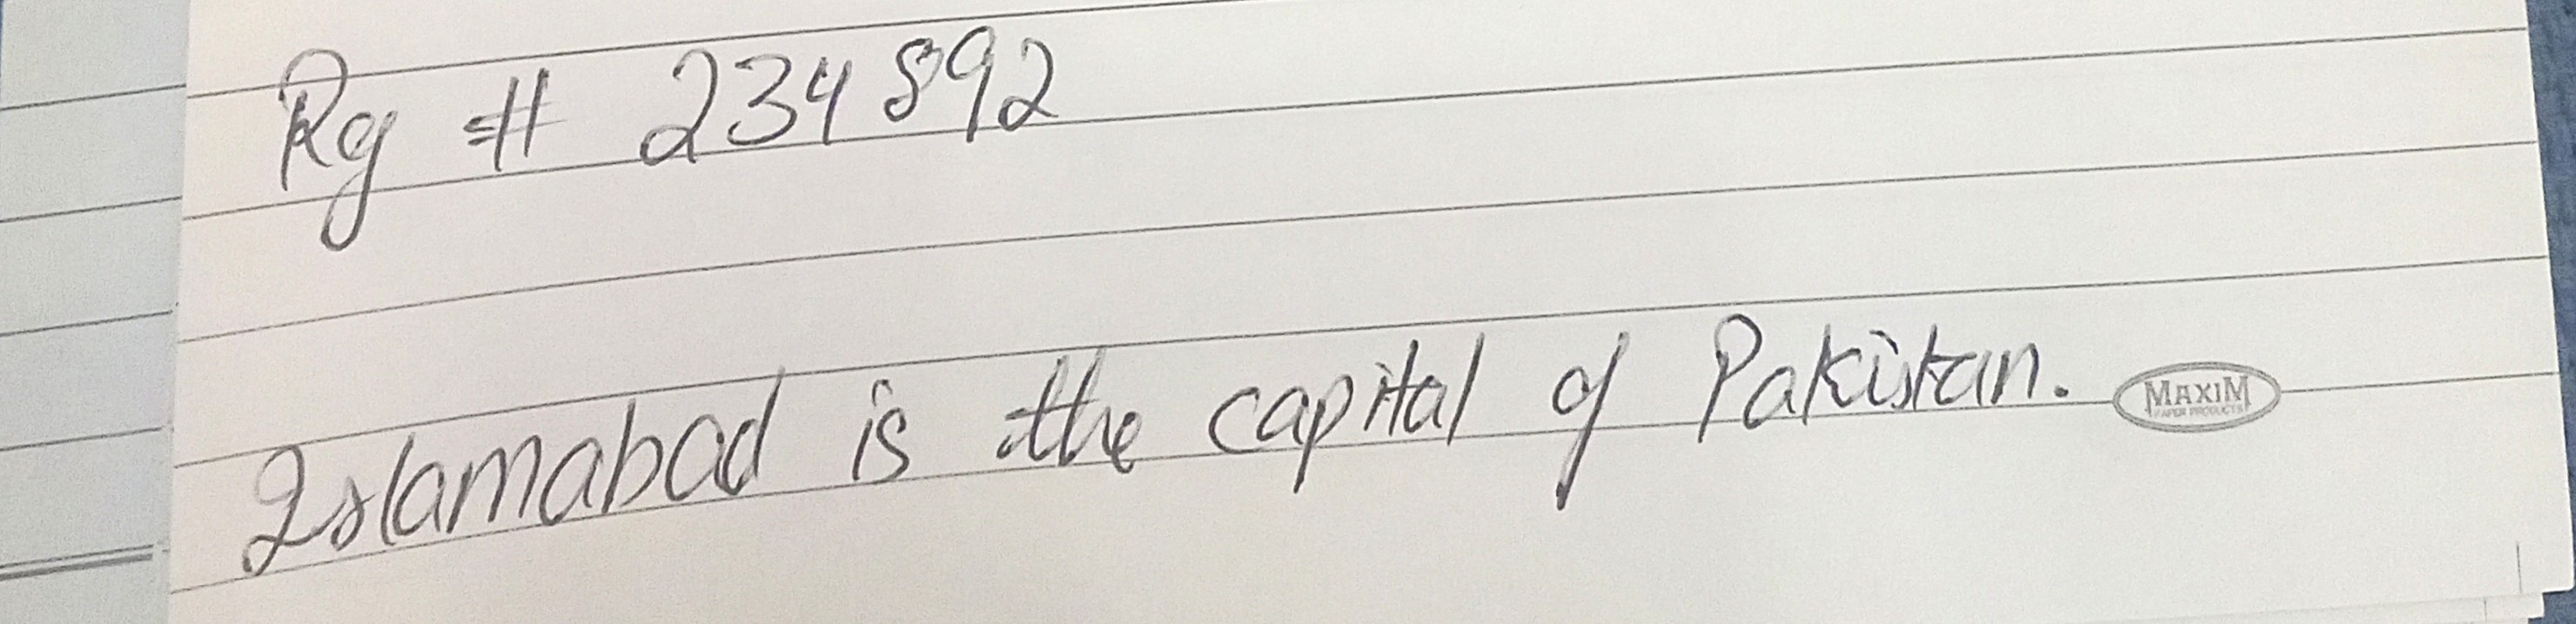 Rg # 234892
Islamabad is the capital of Pakistan.
MAXIM
PAPER PRODUCTS